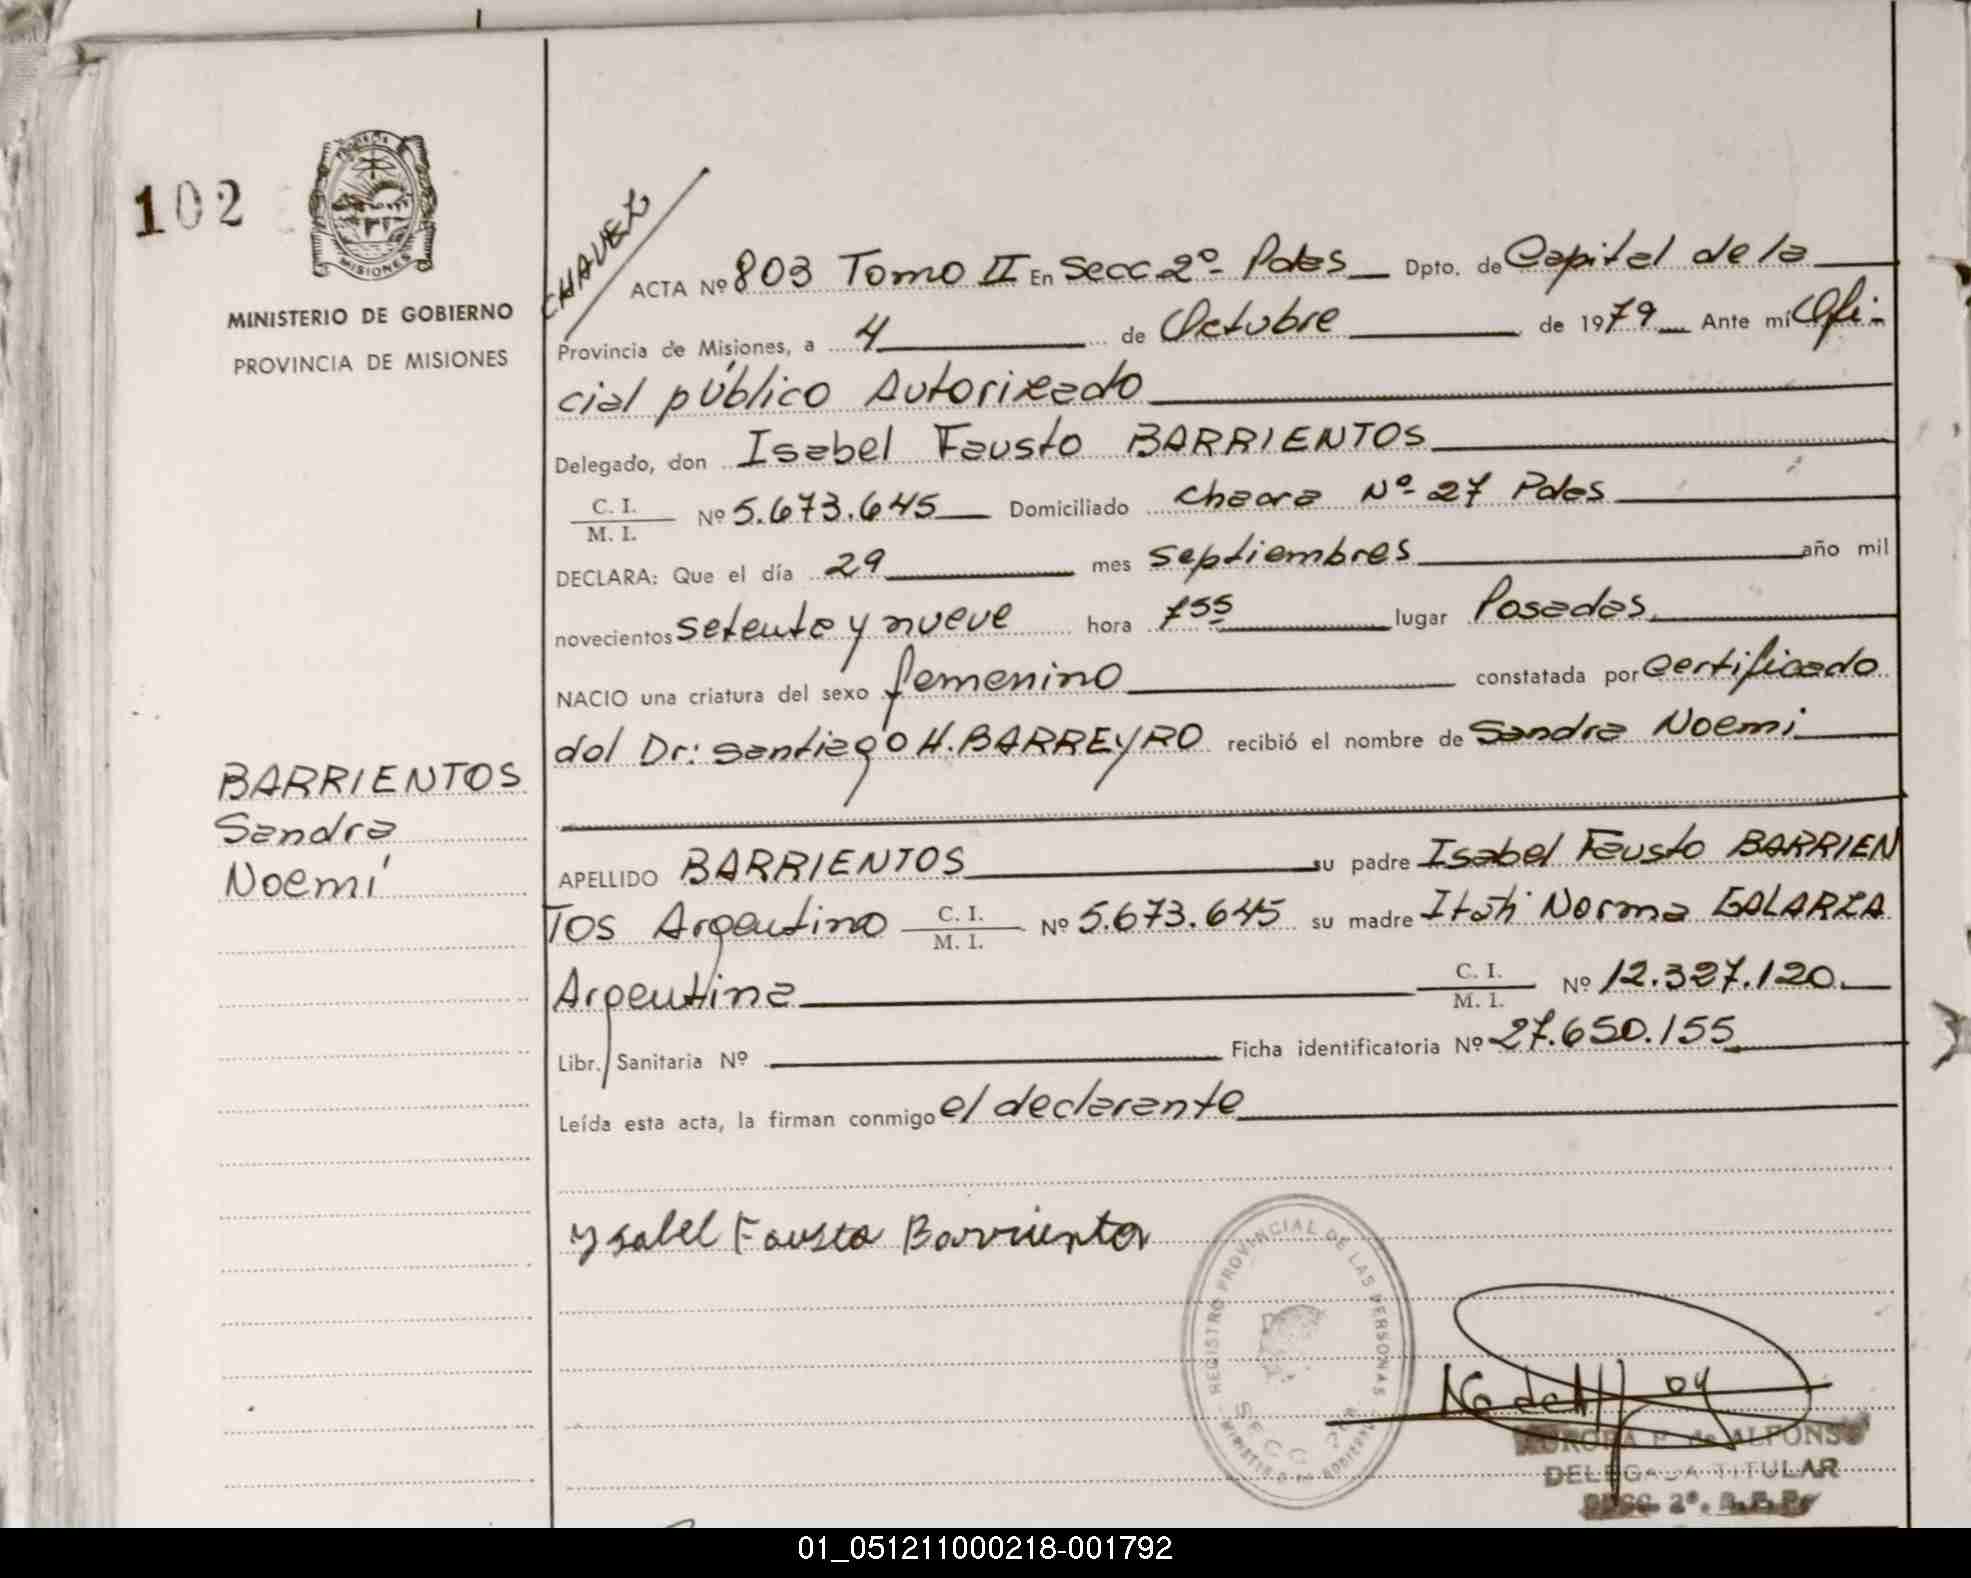 102
PROVINCIA
MISIONES
MINISTERIO DE GOBIERNO
PROVINCIA DE MISIONES
BARRIENTOS
Sandra
Noemí
CHAVEZ
ACTA Nº 803 Tomo II En Secc 2º- Pdas Dpto. de Capital de la
Provincia de Misiones, a 4 de Octubre de 1979 Ante mí Ofi-
cial público Autorizado
Delegado, don Isabel Fausto BARRIENTOS
C. I.
M. I. Nº 5.673.645 Domiciliado chacra Nº- 27 Pdas
DECLARA: Que el día 29 mes septiembres año mil
novecientos setenta y nueve hora 7 55 lugar Posadas
NACIO una criatura del sexo femenino constatada por certificado
dol Dr: Santiago H. BARREYRO recibió el nombre de Sandra Noemi
APELLIDO BARRIENTOS su padre Isabel Fausto BARRIEN
TOS Argentino C. I.
M. I. Nº 5.673.645 su madre Itatí Norma GALARZA
Argentina C. I.
M. I. Nº 12.327.120
Libr. Sanitaria Nº Ficha identificatoria Nº 27.650.155
Leída esta acta, la firman conmigo el declarante
Ysabel Fausto Barrientos
REGISTRO PROVINCIAL DE LAS PERSONAS
SECC 2da
MINISTERIO DE GOBIERNO
AURORA de ALFONSO
DELEGADA TITULAR
SECC. 2º.
01_051211000218-001792